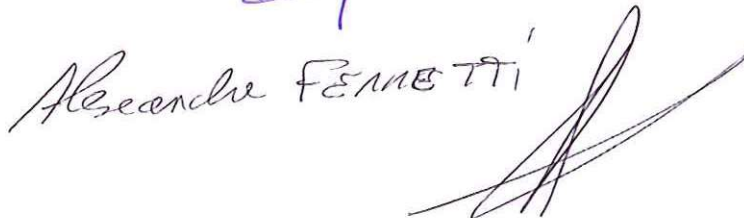 Alessandro FERRETTI